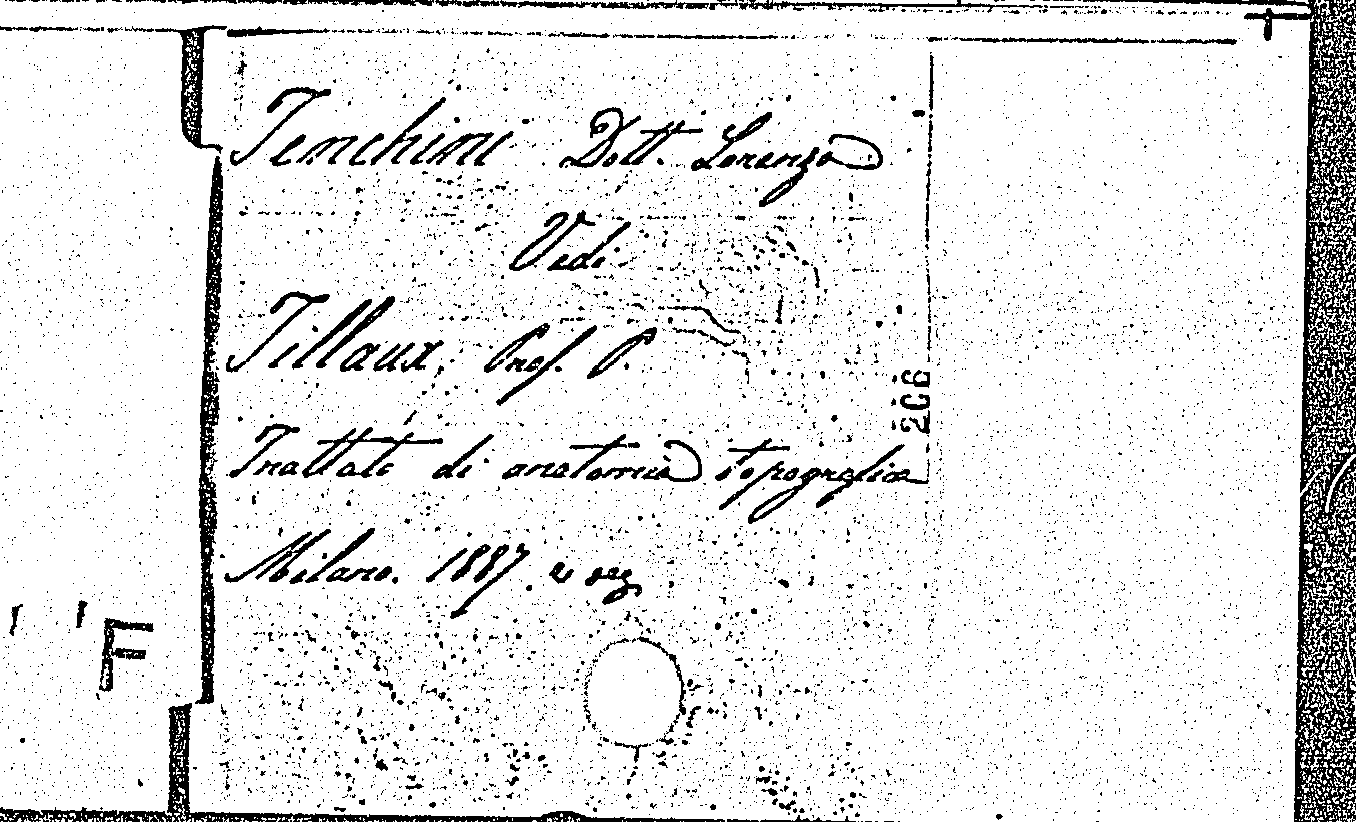 Tenchini Dott. Lorenzo
Vedi
Tillaux, Prof. P.
Trattato di anatomia topografica
Milano. 1887. e seg.
206
F